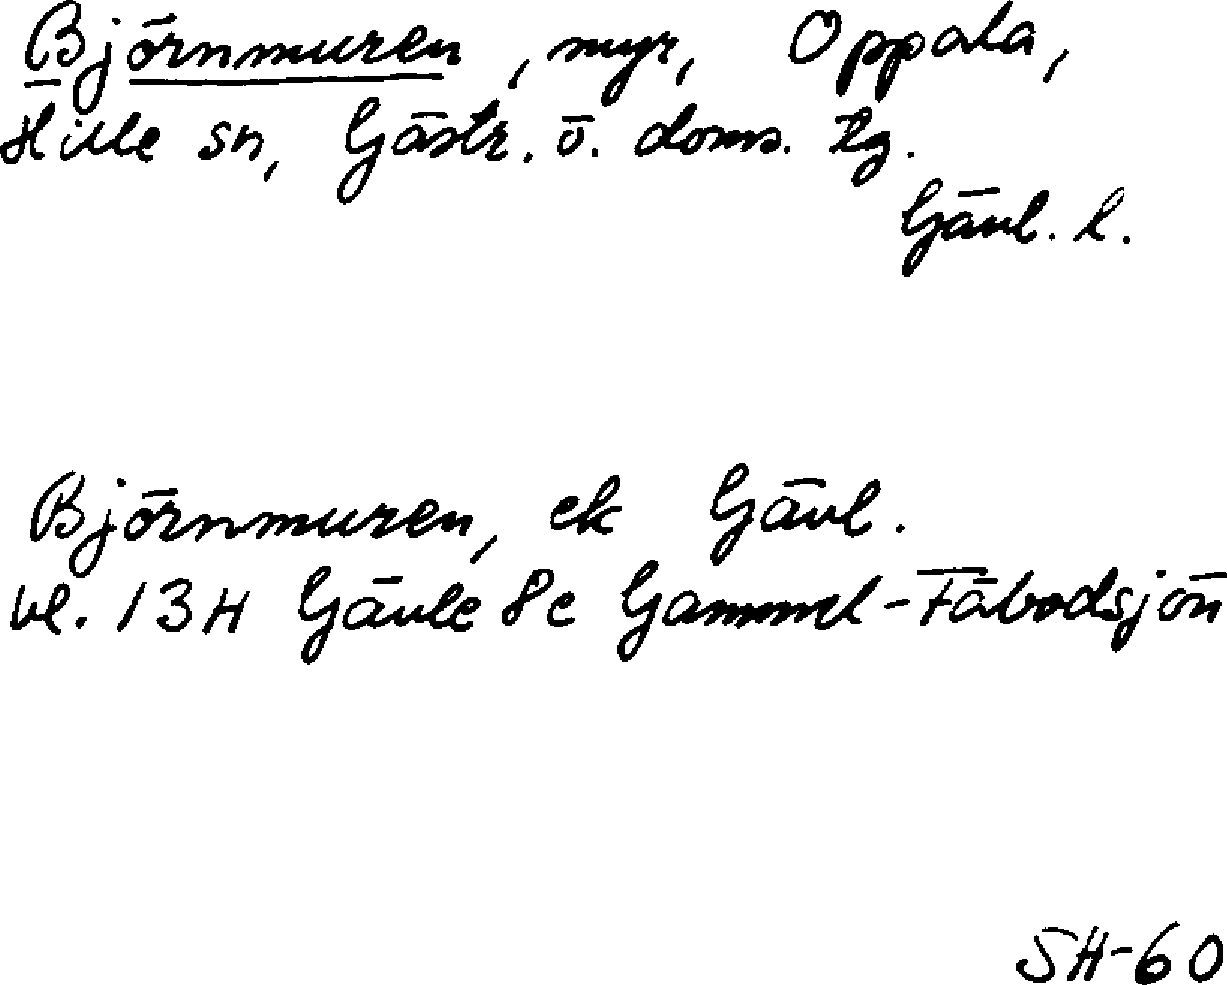 Björnmuren, myr, Oppala,
Hille sn, Gästr. ö. doms. tg.
Gävl. l.
Björnmuren, ek Gävl.
bl. 13H Gävle 8c Gammel-Fäbodsjön
SH-60